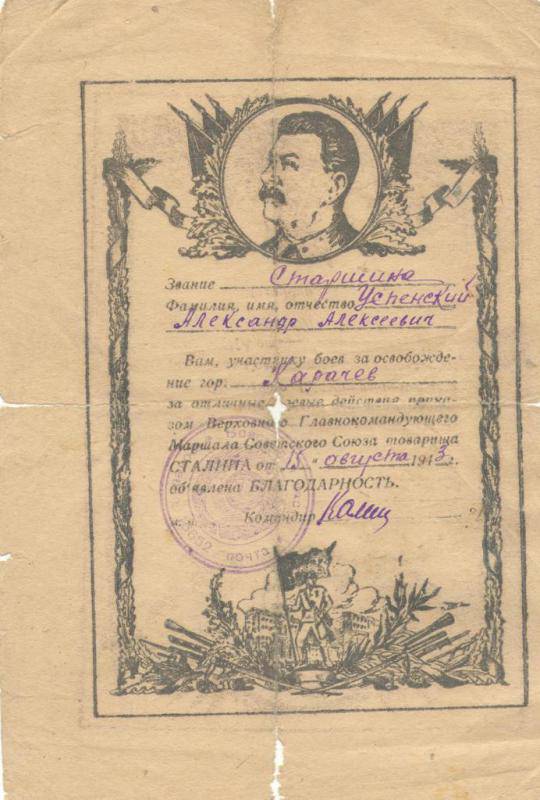 Звание Старшина
Фамилия, имя, отчество Успенский
Александр Алексеевич
Вам, участнику боев за освобожде-
ние гор. Карачев
за отличные боевые действия прика-
зом Верховного Главнокомандующего
Маршала Советского Союза товарища
СТАЛИНА от „15“ августа 1943 г.
объявлена БЛАГОДАРНОСТЬ.
Командир
почта